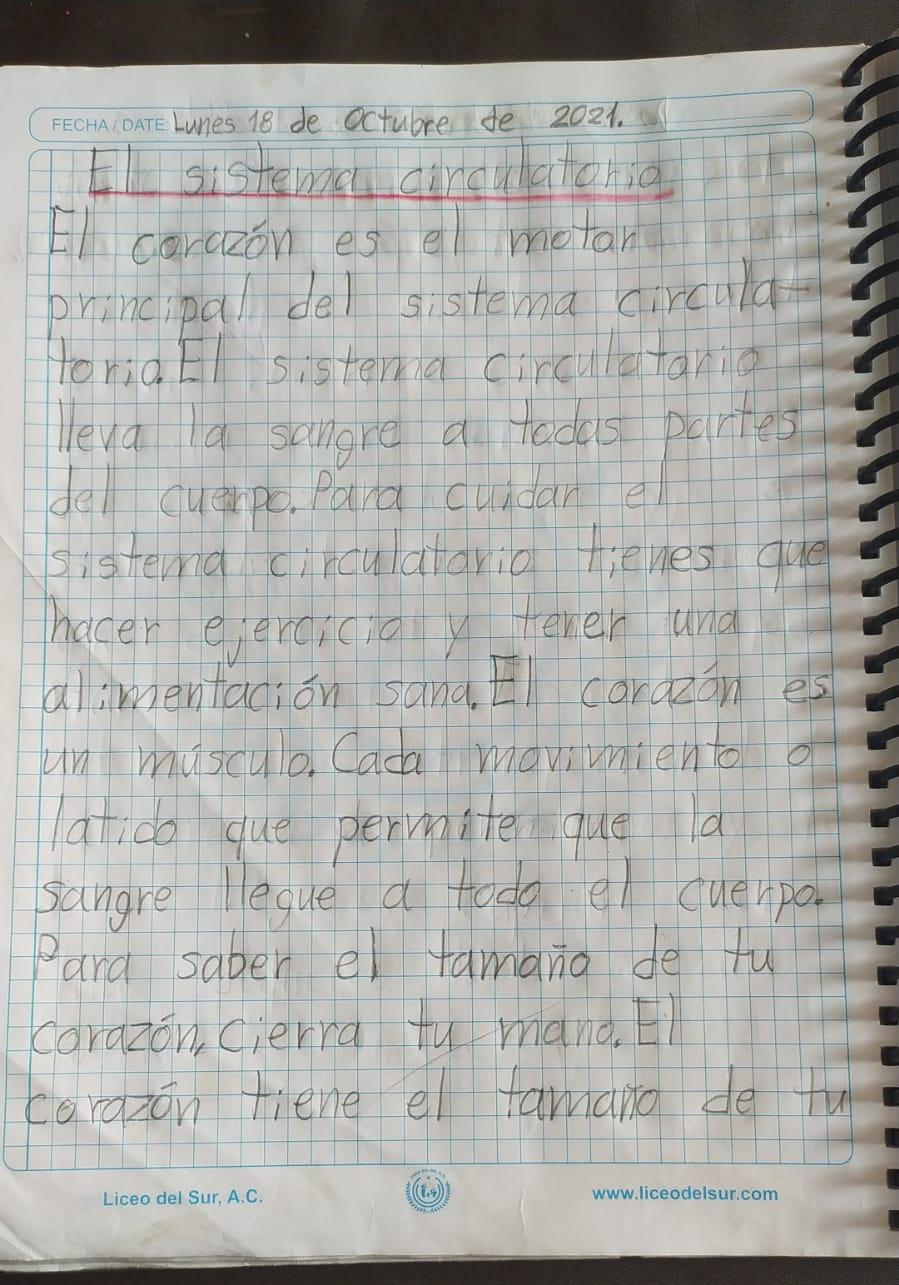 FECHA / DATE: Lunes 18 de Octubre de 2021.
El sistema circulatorio
El corazón es el motor
principal del sistema circula-
torio. El sistema circulatorio
lleva la sangre a todas partes
del cuerpo. Para cuidar el
sistema circulatorio tienes que
hacer ejercicio y tener una
alimentación sana. El corazón es
un músculo. Cada movimiento o
latido que permite que la
sangre llegue a todo el cuerpo.
Para saber el tamaño de tu
corazón, cierra tu mano. El
corazón tiene el tamaño de tu
Liceo del Sur, A.C.
www.liceodelsur.com